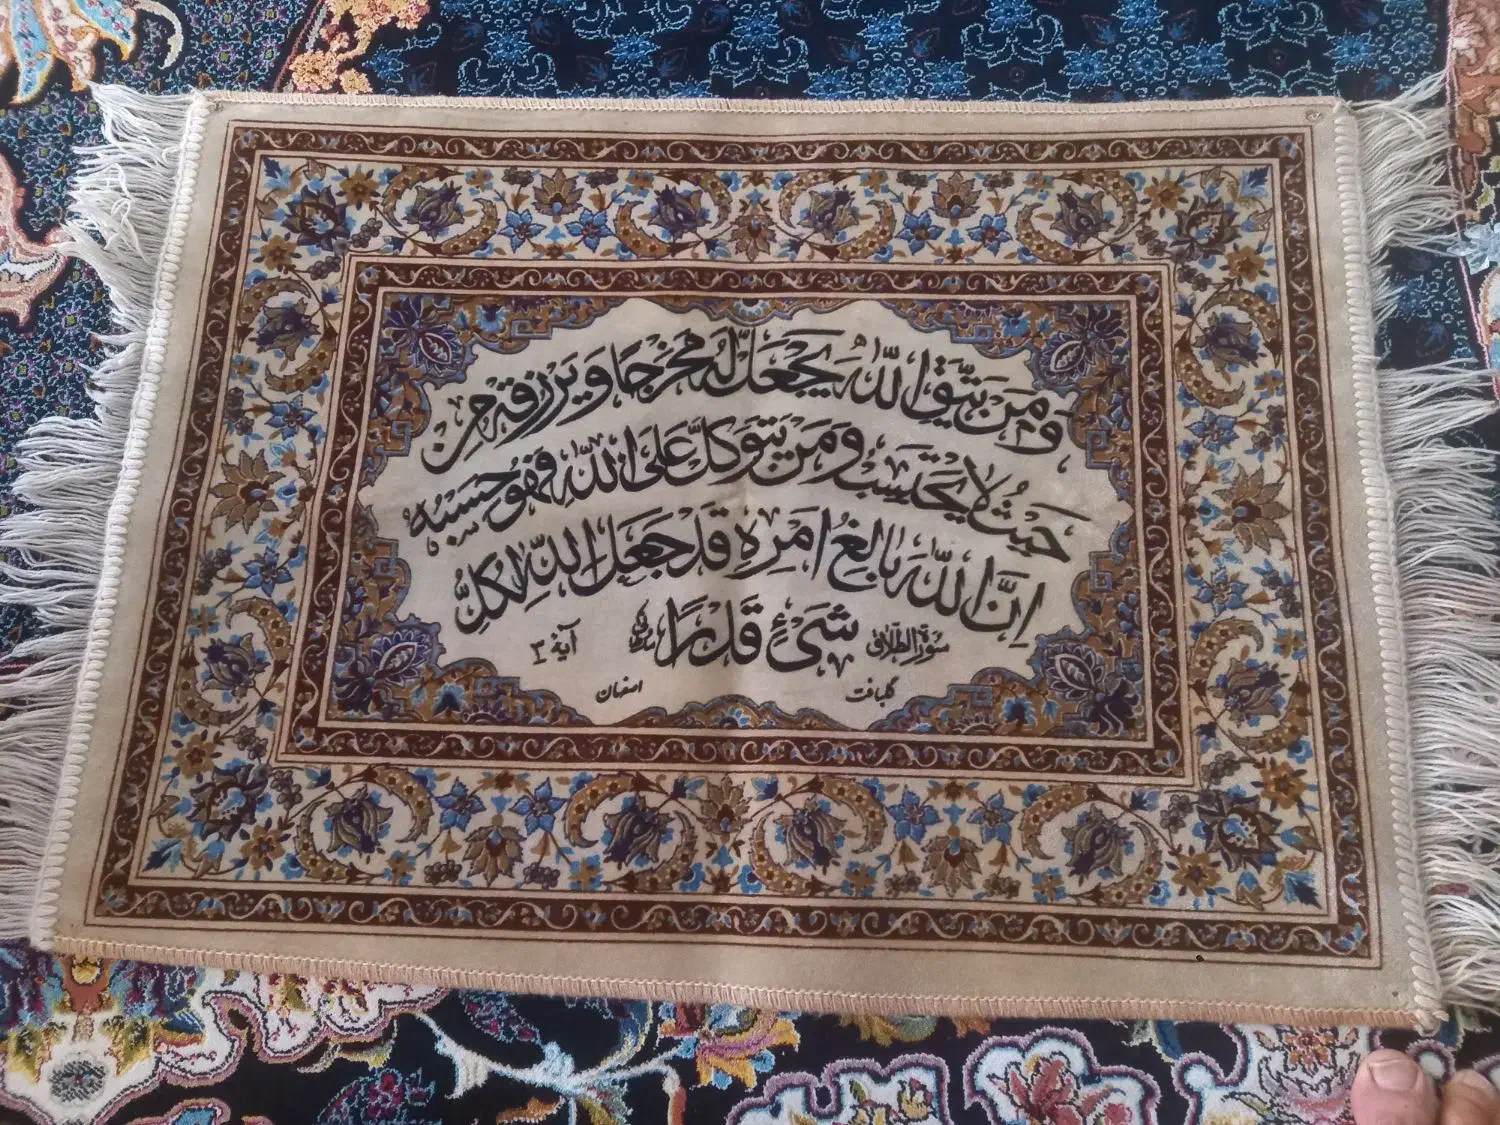 وَمَن يَتَّقِ اللّٰهَ يَجْعَل لَّهُ مَخْرَجًا وَ يَرْزُقْهُ مِنْ
حَيْثُ لَا يَحْتَسِبُ وَمَنْ يَتَوَكَّلْ عَلَى اللّٰهِ فَهُوَ حَسْبُهُ
اِنَّ اللّٰهَ بَالِغُ اَمْرِهِ قَدْ جَعَلَ اللّٰهُ لِكُلِّ
شَیْءٍ قَدْرًا
سورة الطلاق
آیة ۳
گلبافت
اصفهان